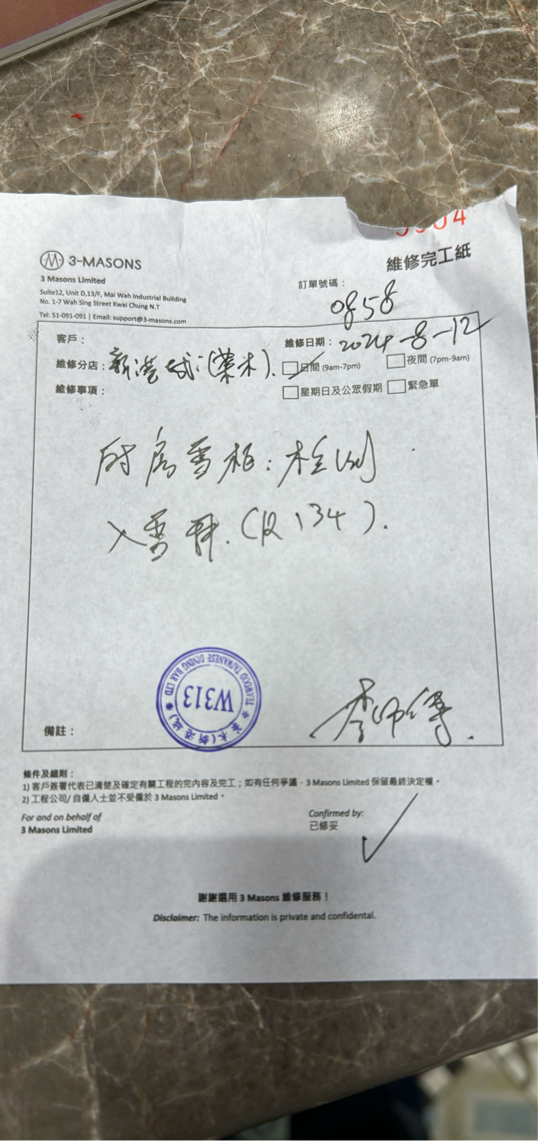 3-MASONS
維修完工紙
3 Masons Limited
Suite12, Unit D,13/F, Mai Wah Industrial Building
No. 1-7 Wah Sing Street Kwai Chung N.T
Tel: 51-091-091 | Email: support@3-masons.com
訂單號碼：
0858
客戶：
維修日期：2024-8-12
維修分店：新港城(葉木).
日間 (9am-7pm) 夜間 (7pm-9am)
維修事項：
星期日及公眾假期 緊急單
雪柜：檢測
入雪種.(R134).
W313
李師傅.
備註：
條件及細則：
1) 客戶簽署代表已清楚及確定有關工程的完內容及完工；如有任何爭議，3 Masons Limited 保留最終決定權。
2) 工程公司/ 自僱人士並不受僱於 3 Masons Limited。
For and on behalf of
3 Masons Limited
Confirmed by:
已修妥
謝謝選用 3 Masons 維修服務！
Disclaimer: The information is private and confidental.